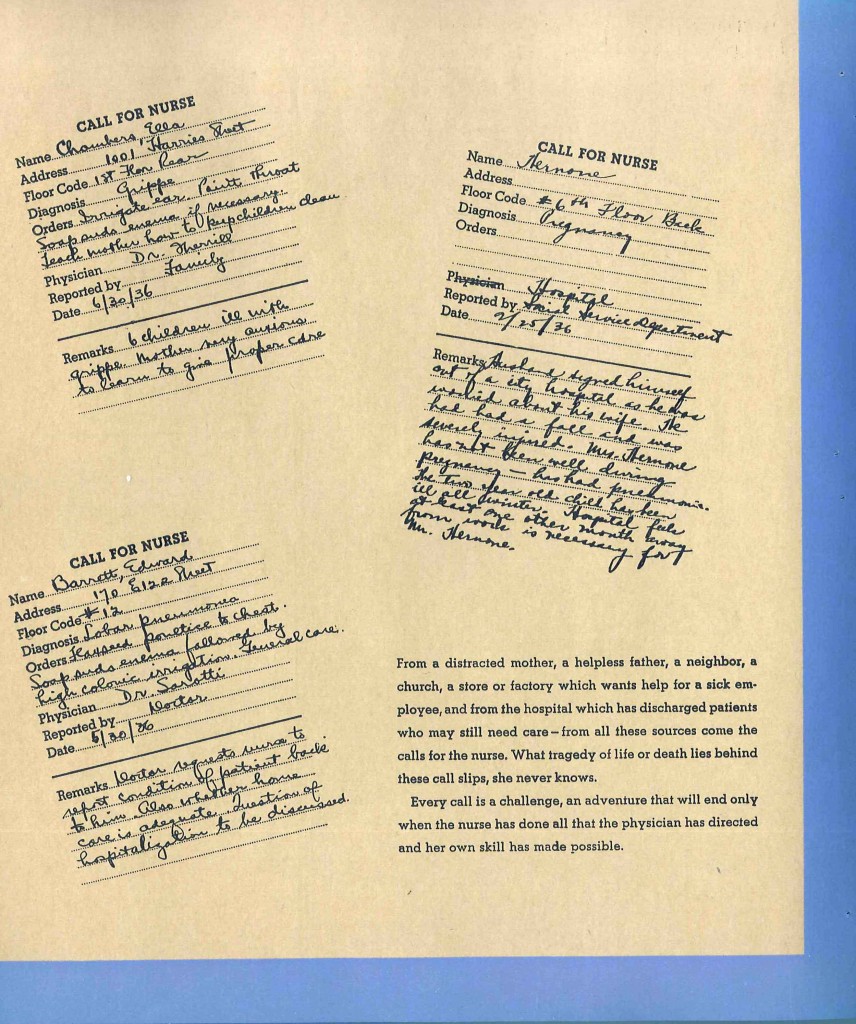 CALL FOR NURSE
Name Chambers, Ella
Address 1001 Harries Street
Floor Code 1st Flor Rear
Diagnosis Grippe
Orders Irrigate ear. Paint Throat
Soap suds enema if necessary.
Teach mother how to keep children clean
Physician Dr. Sherrill
Reported by Family
Date 6/30/36
Remarks 6 children ill with
grippe. Mother very anxious
to learn to give proper care
CALL FOR NURSE
Name Barrott, Edward
Address 170 E 122 Street
Floor Code #12
Diagnosis Lobar pneumonia
Orders Flaxseed poultice to chest.
Soap suds enema followed by
high colonic irrigation. General care.
Physician Dr. Sarotti
Reported by Doctor
Date 5/30/36
Remarks Doctor requests nurse to
report condition of patient back
to him. Also whether home
care is adequate. Question of
hospitalization to be discussed.
CALL FOR NURSE
Name Hernone
Address
Floor Code #6th Floor Back
Diagnosis Pregnancy
Orders
Physician Hospital
Reported by Social Service Department
Date 2/25/36
Remarks Husband signed himself
out of a city hospital as he was
worried about his wife. He
had had a fall and was
severely injured. Mrs. Hernone
has not been well during
pregnancy – has had pneumonia.
The two year old child has been
ill all winter. Hospital feels
at least one other month away
from work is necessary for
Mr. Hernone.
From a distracted mother, a helpless father, a neighbor, a
church, a store or factory which wants help for a sick em-
ployee, and from the hospital which has discharged patients
who may still need care—from all these sources come the
calls for the nurse. What tragedy of life or death lies behind
these call slips, she never knows.
Every call is a challenge, an adventure that will end only
when the nurse has done all that the physician has directed
and her own skill has made possible.